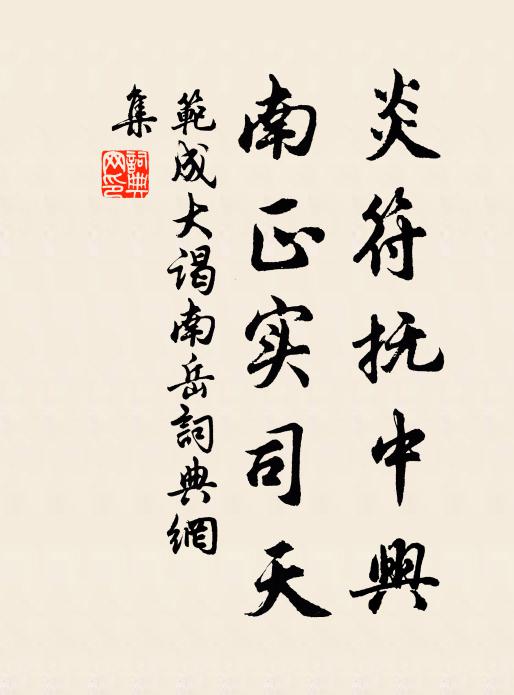 炎符抚中興
南正实司天
範成大谒南岳詞典網
集
詞典
网印